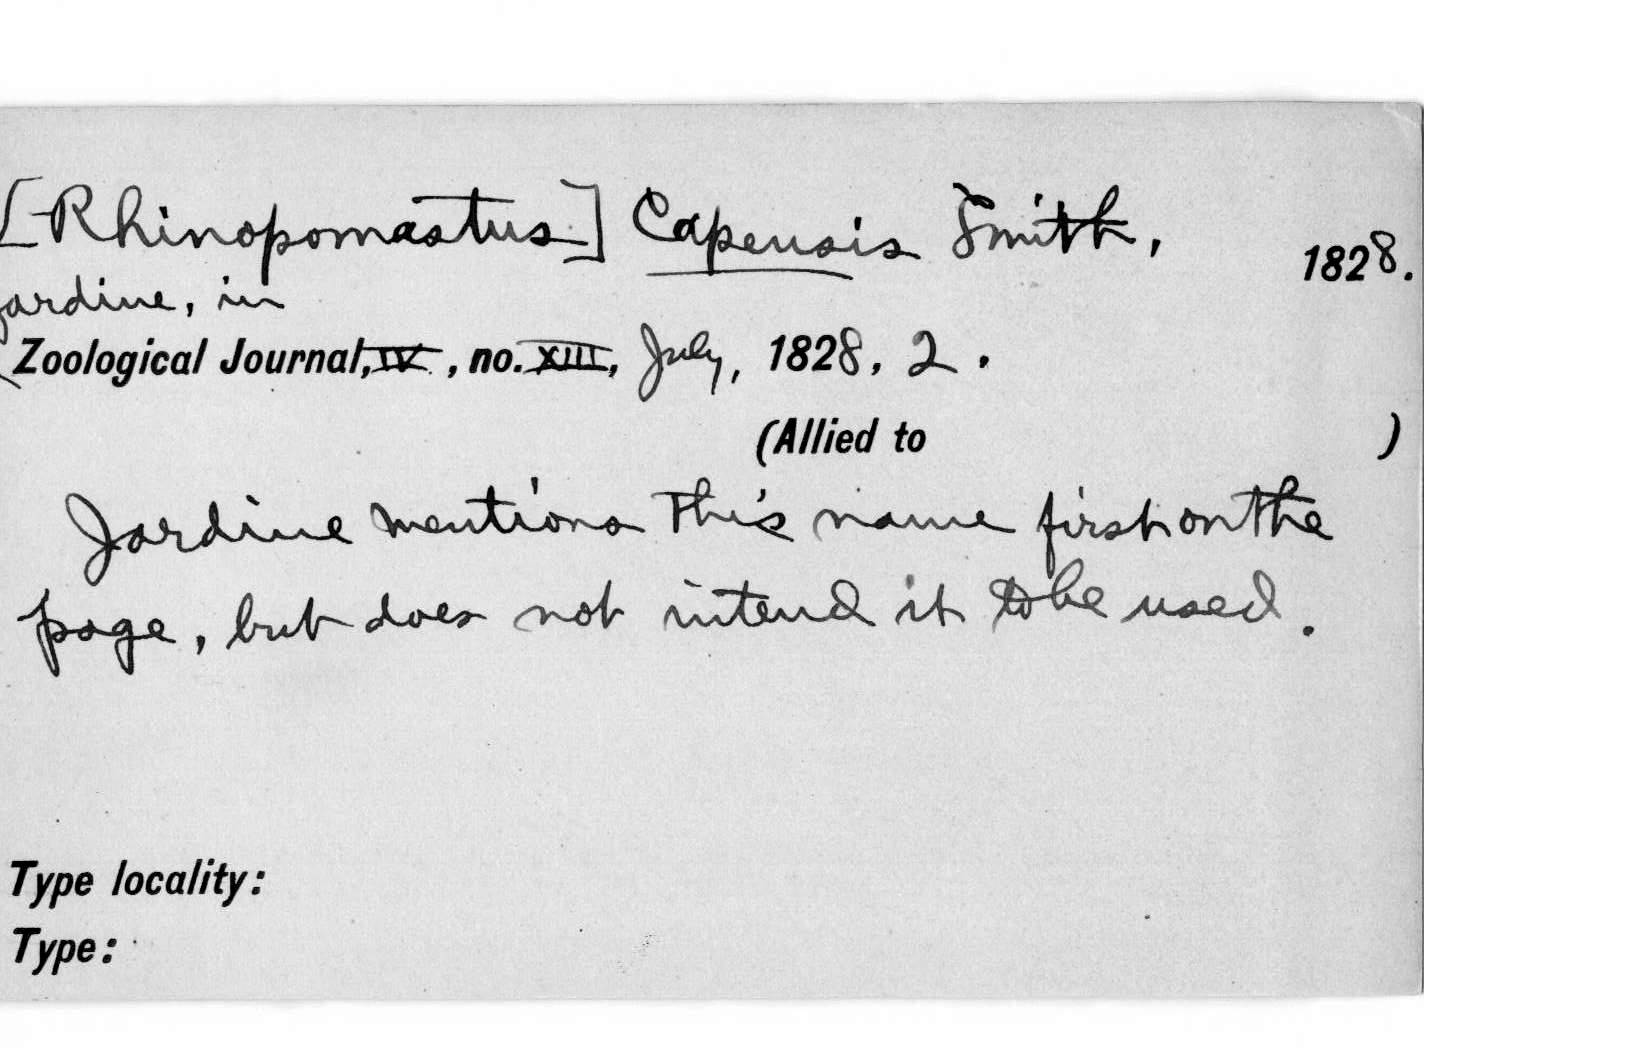 [Rhinopomastus] Capensis Smith,
1828.
Jardine, in
Zoological Journal, IV, no. XIII, July, 1828, 2.
(Allied to )
Jardine mentions this name first on the
page, but does not intend it to be used.
Type locality:
Type: